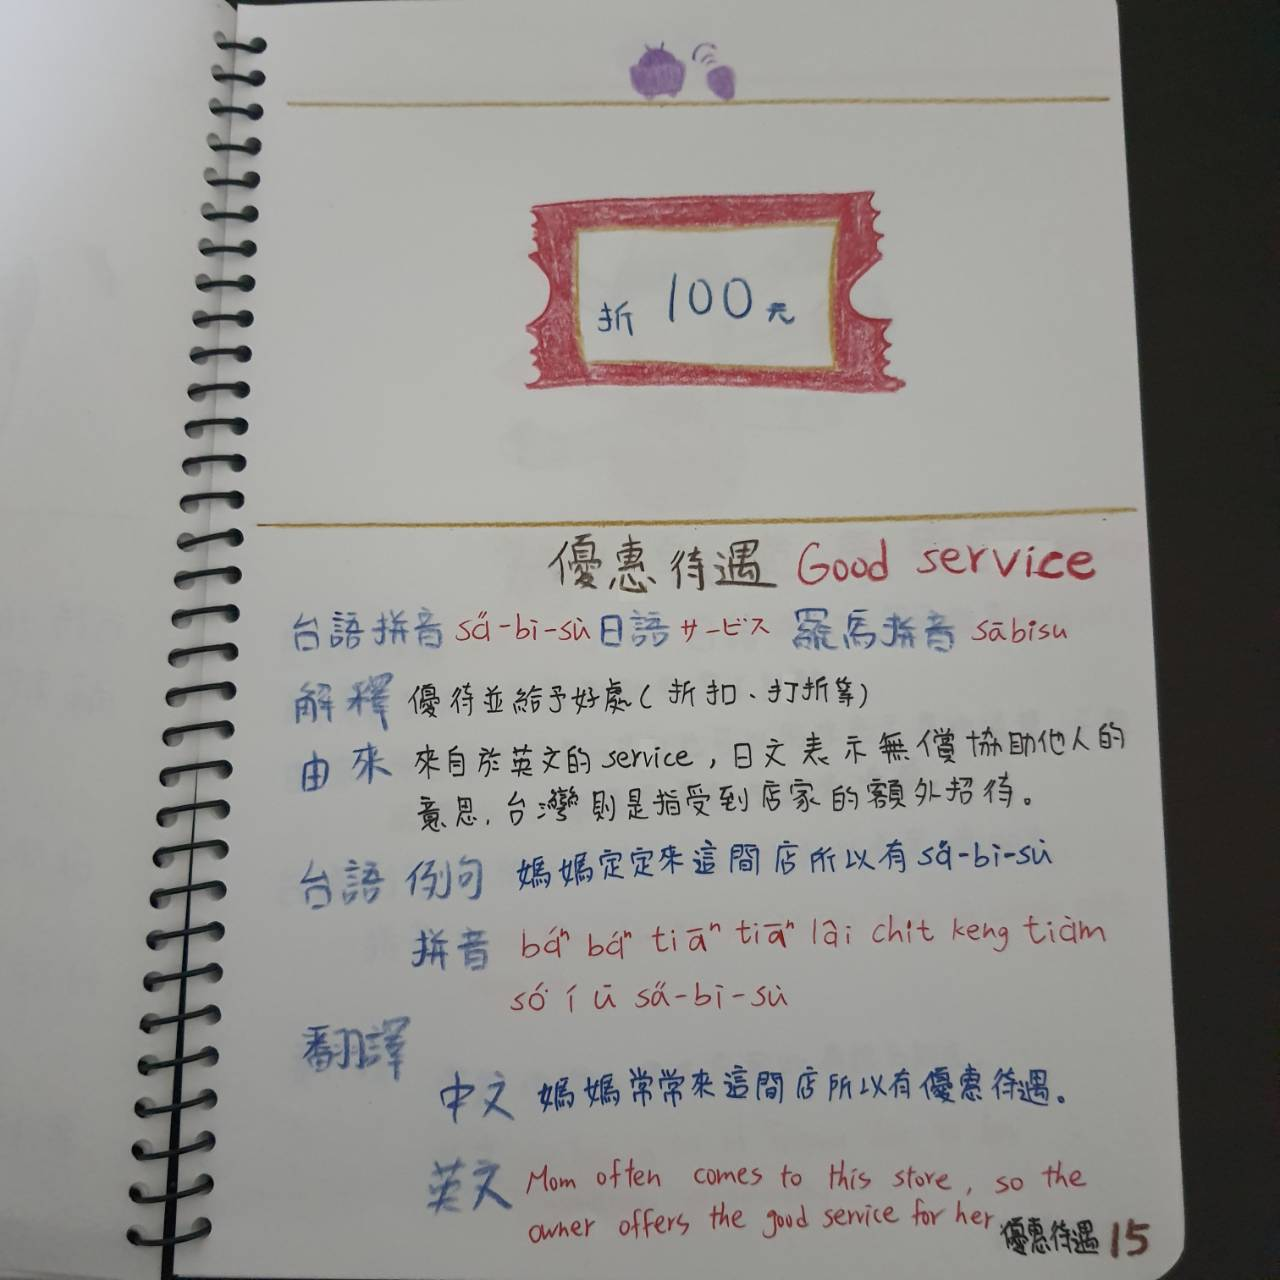 折 100 元
優惠待遇 Good service
台語拼音 sa̋-bì-sù 日語 サービス 羅馬拼音 sābisu
解釋 優待並給予好處(折扣、打折等)
由來 來自於英文的 service，日文表示無償協助他人的
意思，台灣則是指受到店家的額外招待。
台語 例句 媽媽定定來這間店所以有 sa̋-bì-sù
拼音 báⁿ báⁿ tiāⁿ tiāⁿ lâi chit keng tiàm
só͘ í ū sa̋-bì-sù
翻譯
中文 媽媽常常來這間店所以有優惠待遇。
英文 Mom often comes to this store, so the
owner offers the good service for her
優惠待遇 15